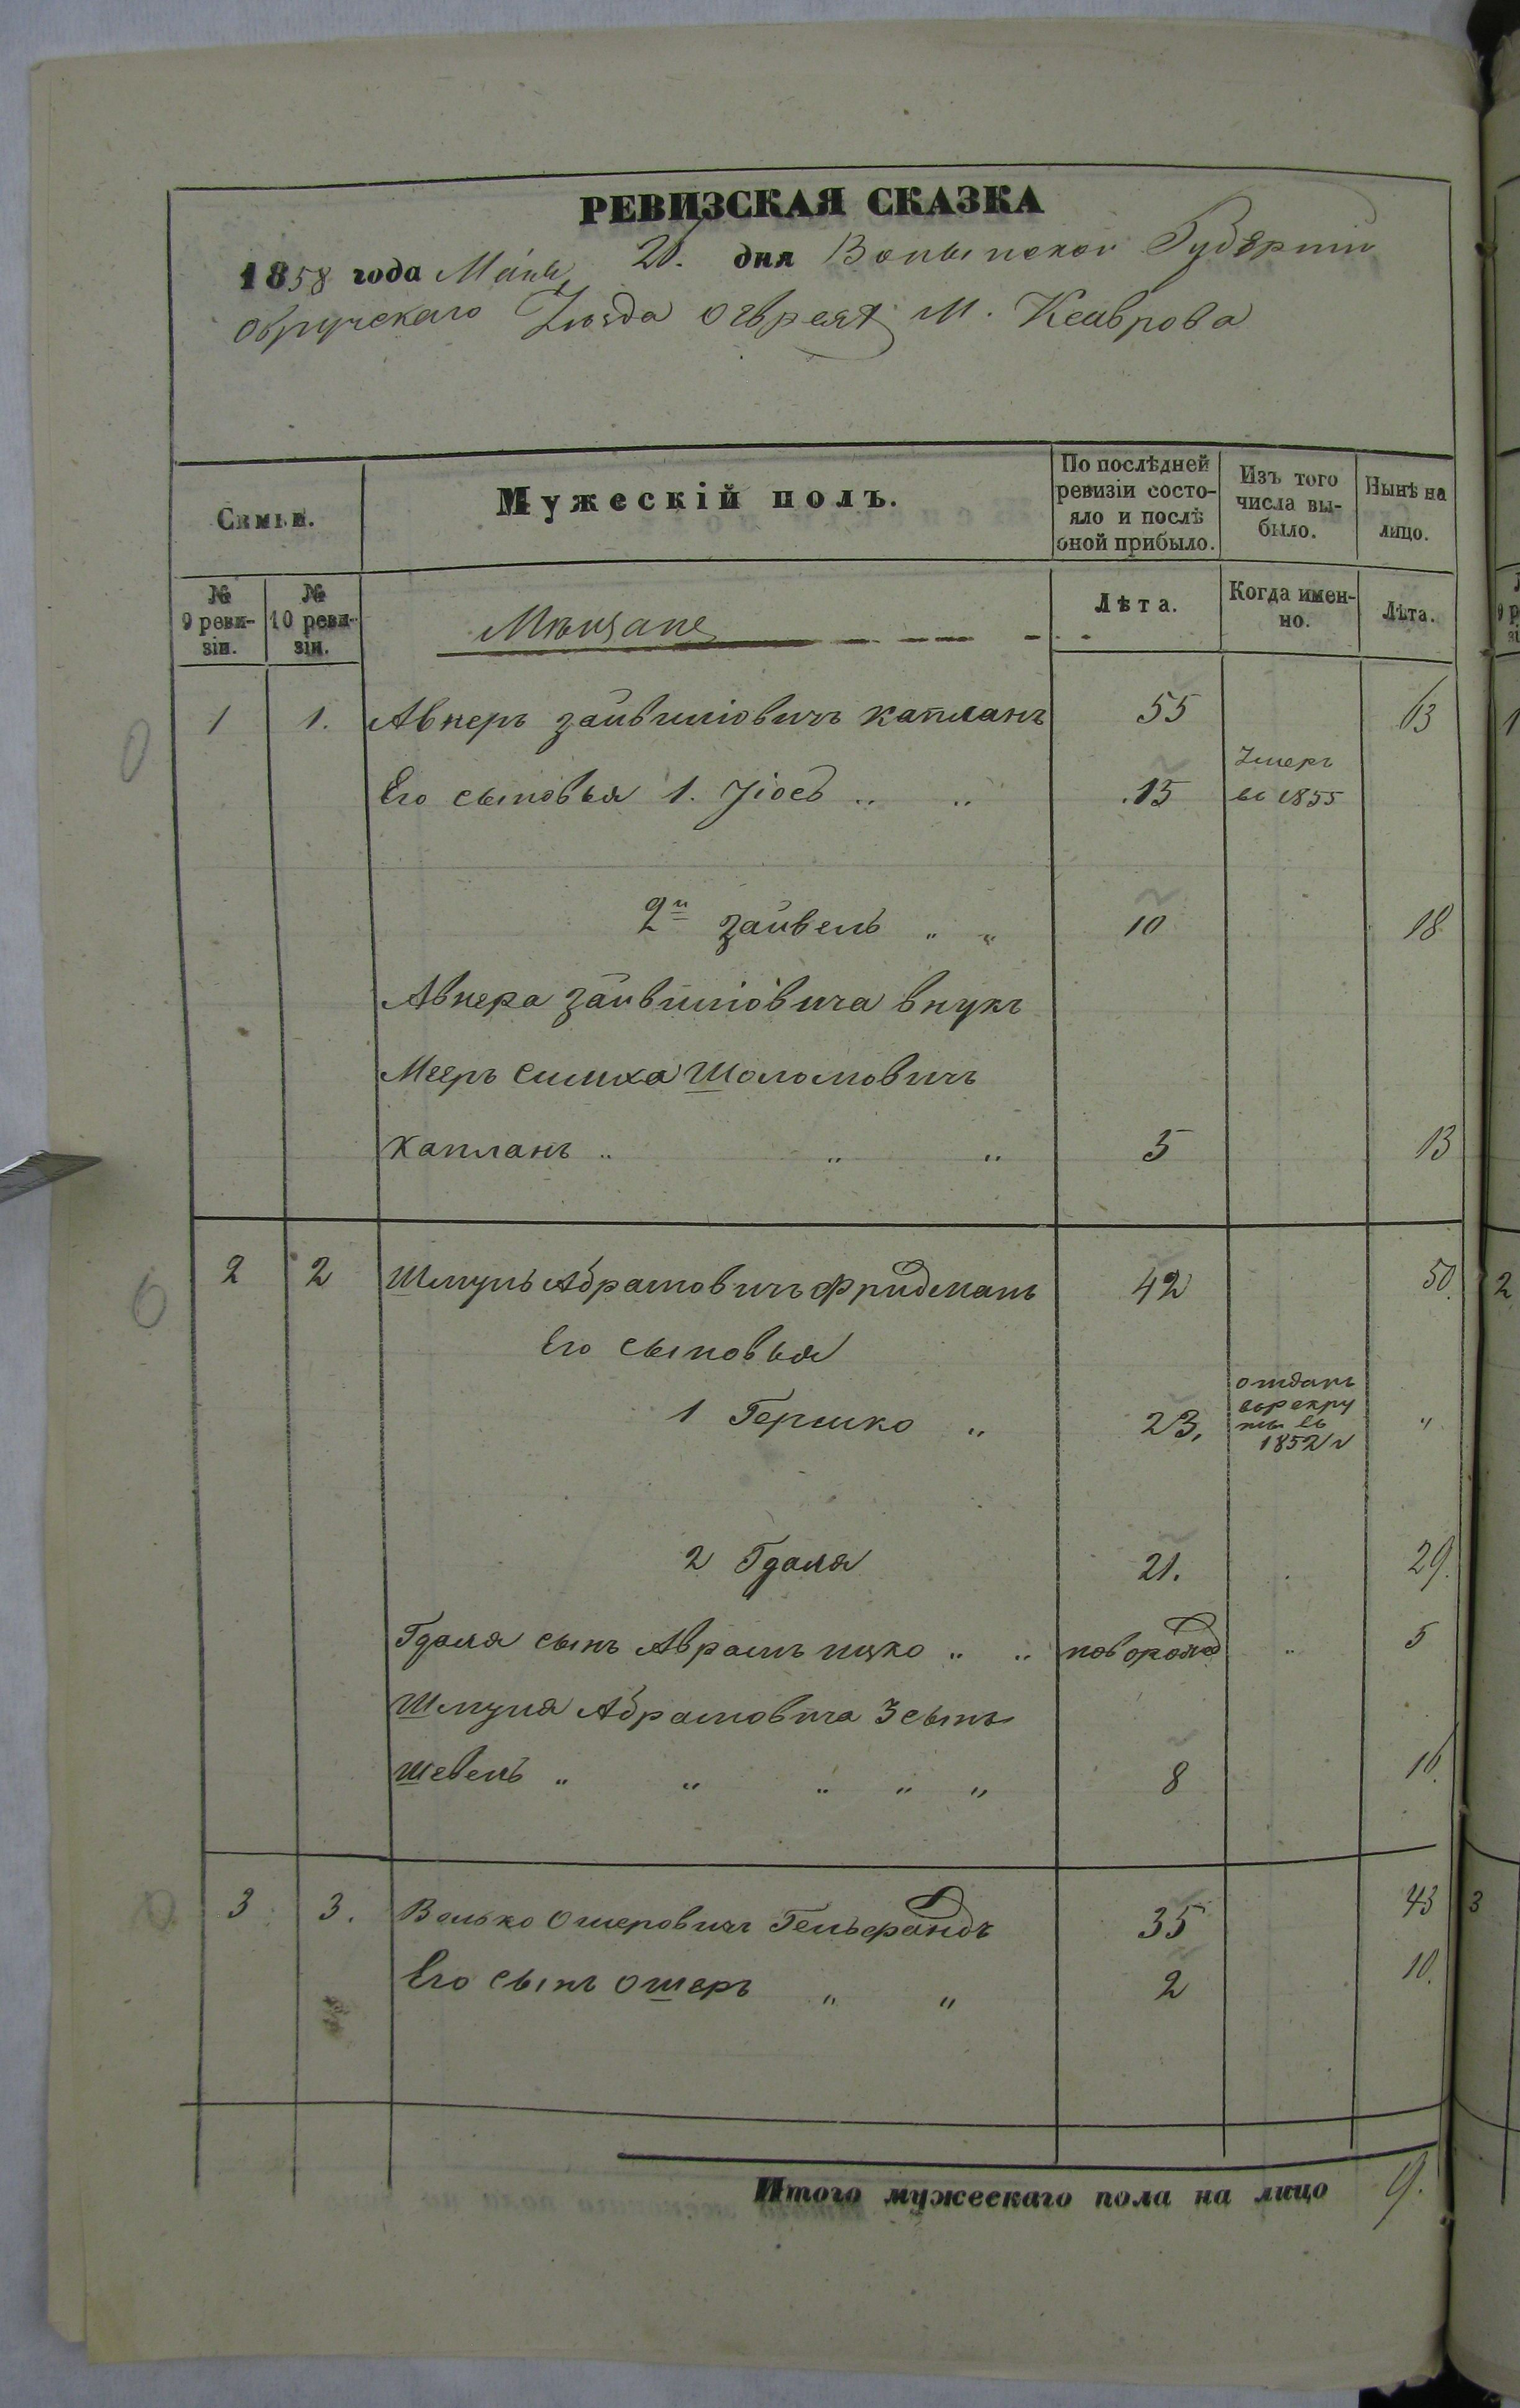 РЕВИЗСКАЯ СКАЗКА
1858 года Маія 20. дня Волынской Губерніи
Овручскаго Уѣзда Овреят М. Ксаврова
Семьи.
Мужескій полъ.
По послѣдней ревизіи состо-
яло и послѣ
оной прибыло.
Изъ того
числа вы-
было.
Нынѣ на
лицо.
№
9 реви-
зіи.
№
10 реви-
зіи.
Мѣщане
Лѣта.
Когда имен-
но.
Лѣта.
1 1. Авнеръ Зайвиліовичъ Капланъ 55 63
Его сыновья 1. Іосъ .. .. 15 Умеръ
въ 1855
2й Зайвель „ „ 10 18
Авнера Зайвиліовича внукъ
Мееръ Симха Шоломовичъ
Капланъ .. .. .. 5 13
2 2 Шмуль Абрамовичъ Фридманъ 42 50
Его сыновья
1 Гершко „ 23, отданъ
въ рекру
ты въ
1852 г „
2 Гдаля 21. 29.
Гдаля сынъ Аврамъ Ицко „ „ новорожд „ 5
Шмуля Абрамовича 3 сынъ
Шевель „ „ „ „ „ 8 16.
3 3. Волько Ошеровичъ Гельфандъ 35 43
Его сынъ Ошеръ „ „ 2 10.
Итого мужескаго пола на лицо 9.